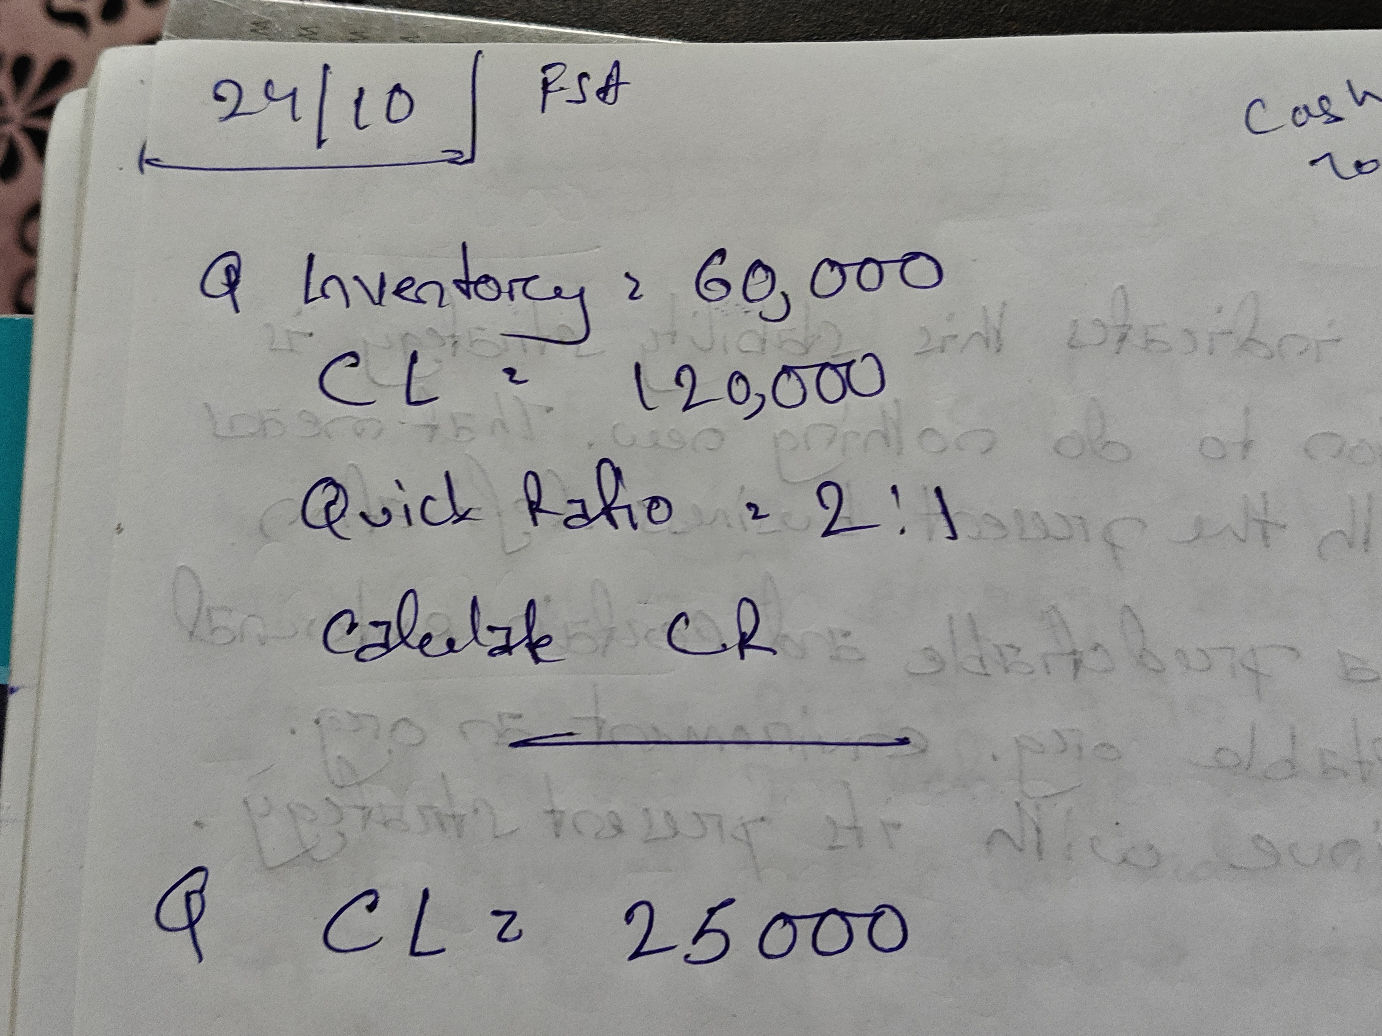 24/10 FSA
Cash
20
Q Inventory = 60,000
CL = 120,000
Quick Ratio = 2:1
Calculate CR
Q CL = 25000